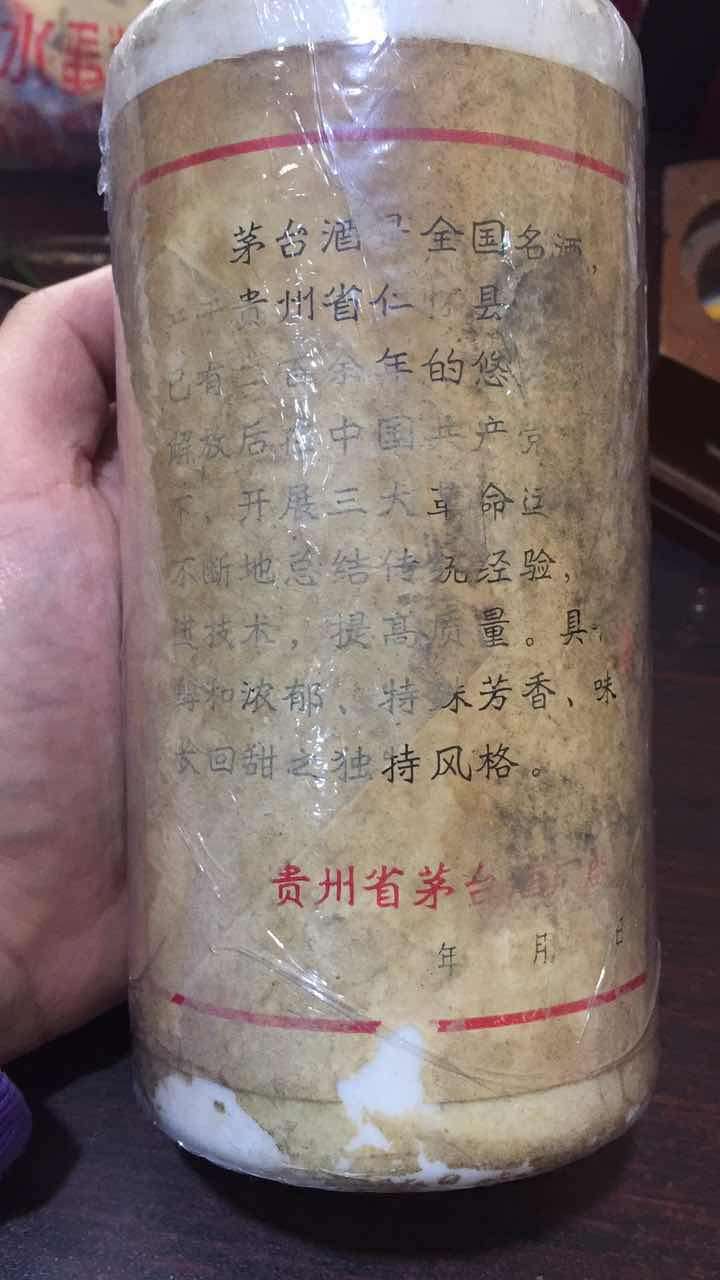 水蛋
茅台酒 全国名酒,
贵州省仁怀县
已有 百余年的悠
解放后在中国共产党
下,开展三大革命运
不断地总结传统经验,
进技术,提高质量。具有
和浓郁、特殊芳香、味
长回甜之独特风格。
贵州省茅台酒厂出
年 月 日